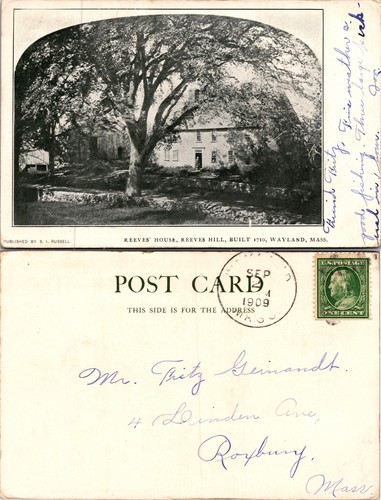 Friend Fritz,
Fine weather &
good fishing. Three large pick-
PUBLISHED BY S. I. RUSSELL
REEVES' HOUSE, REEVES HILL, BUILT 1710, WAYLAND, MASS.
POST CARD
THIS SIDE IS FOR THE ADDRESS
SEP
1909
MASS.
U.S. POSTAGE
ONE CENT
Mr. Fritz Geinandt.
4 Linden Ave,
Roxbury.
Mass